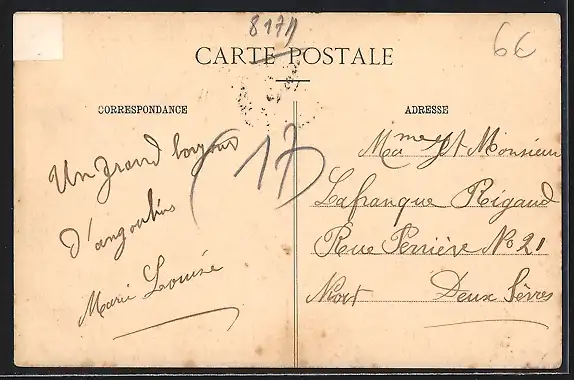 8171
6€
CARTE POSTALE
CORRESPONDANCE
ADRESSE
(17)
Un grand bonjour
D'angoulins
Marie Louise
Mame et Monsieur
Lafranque Rigaud
Rue Perrière No 21
Niort Deux Sèvres